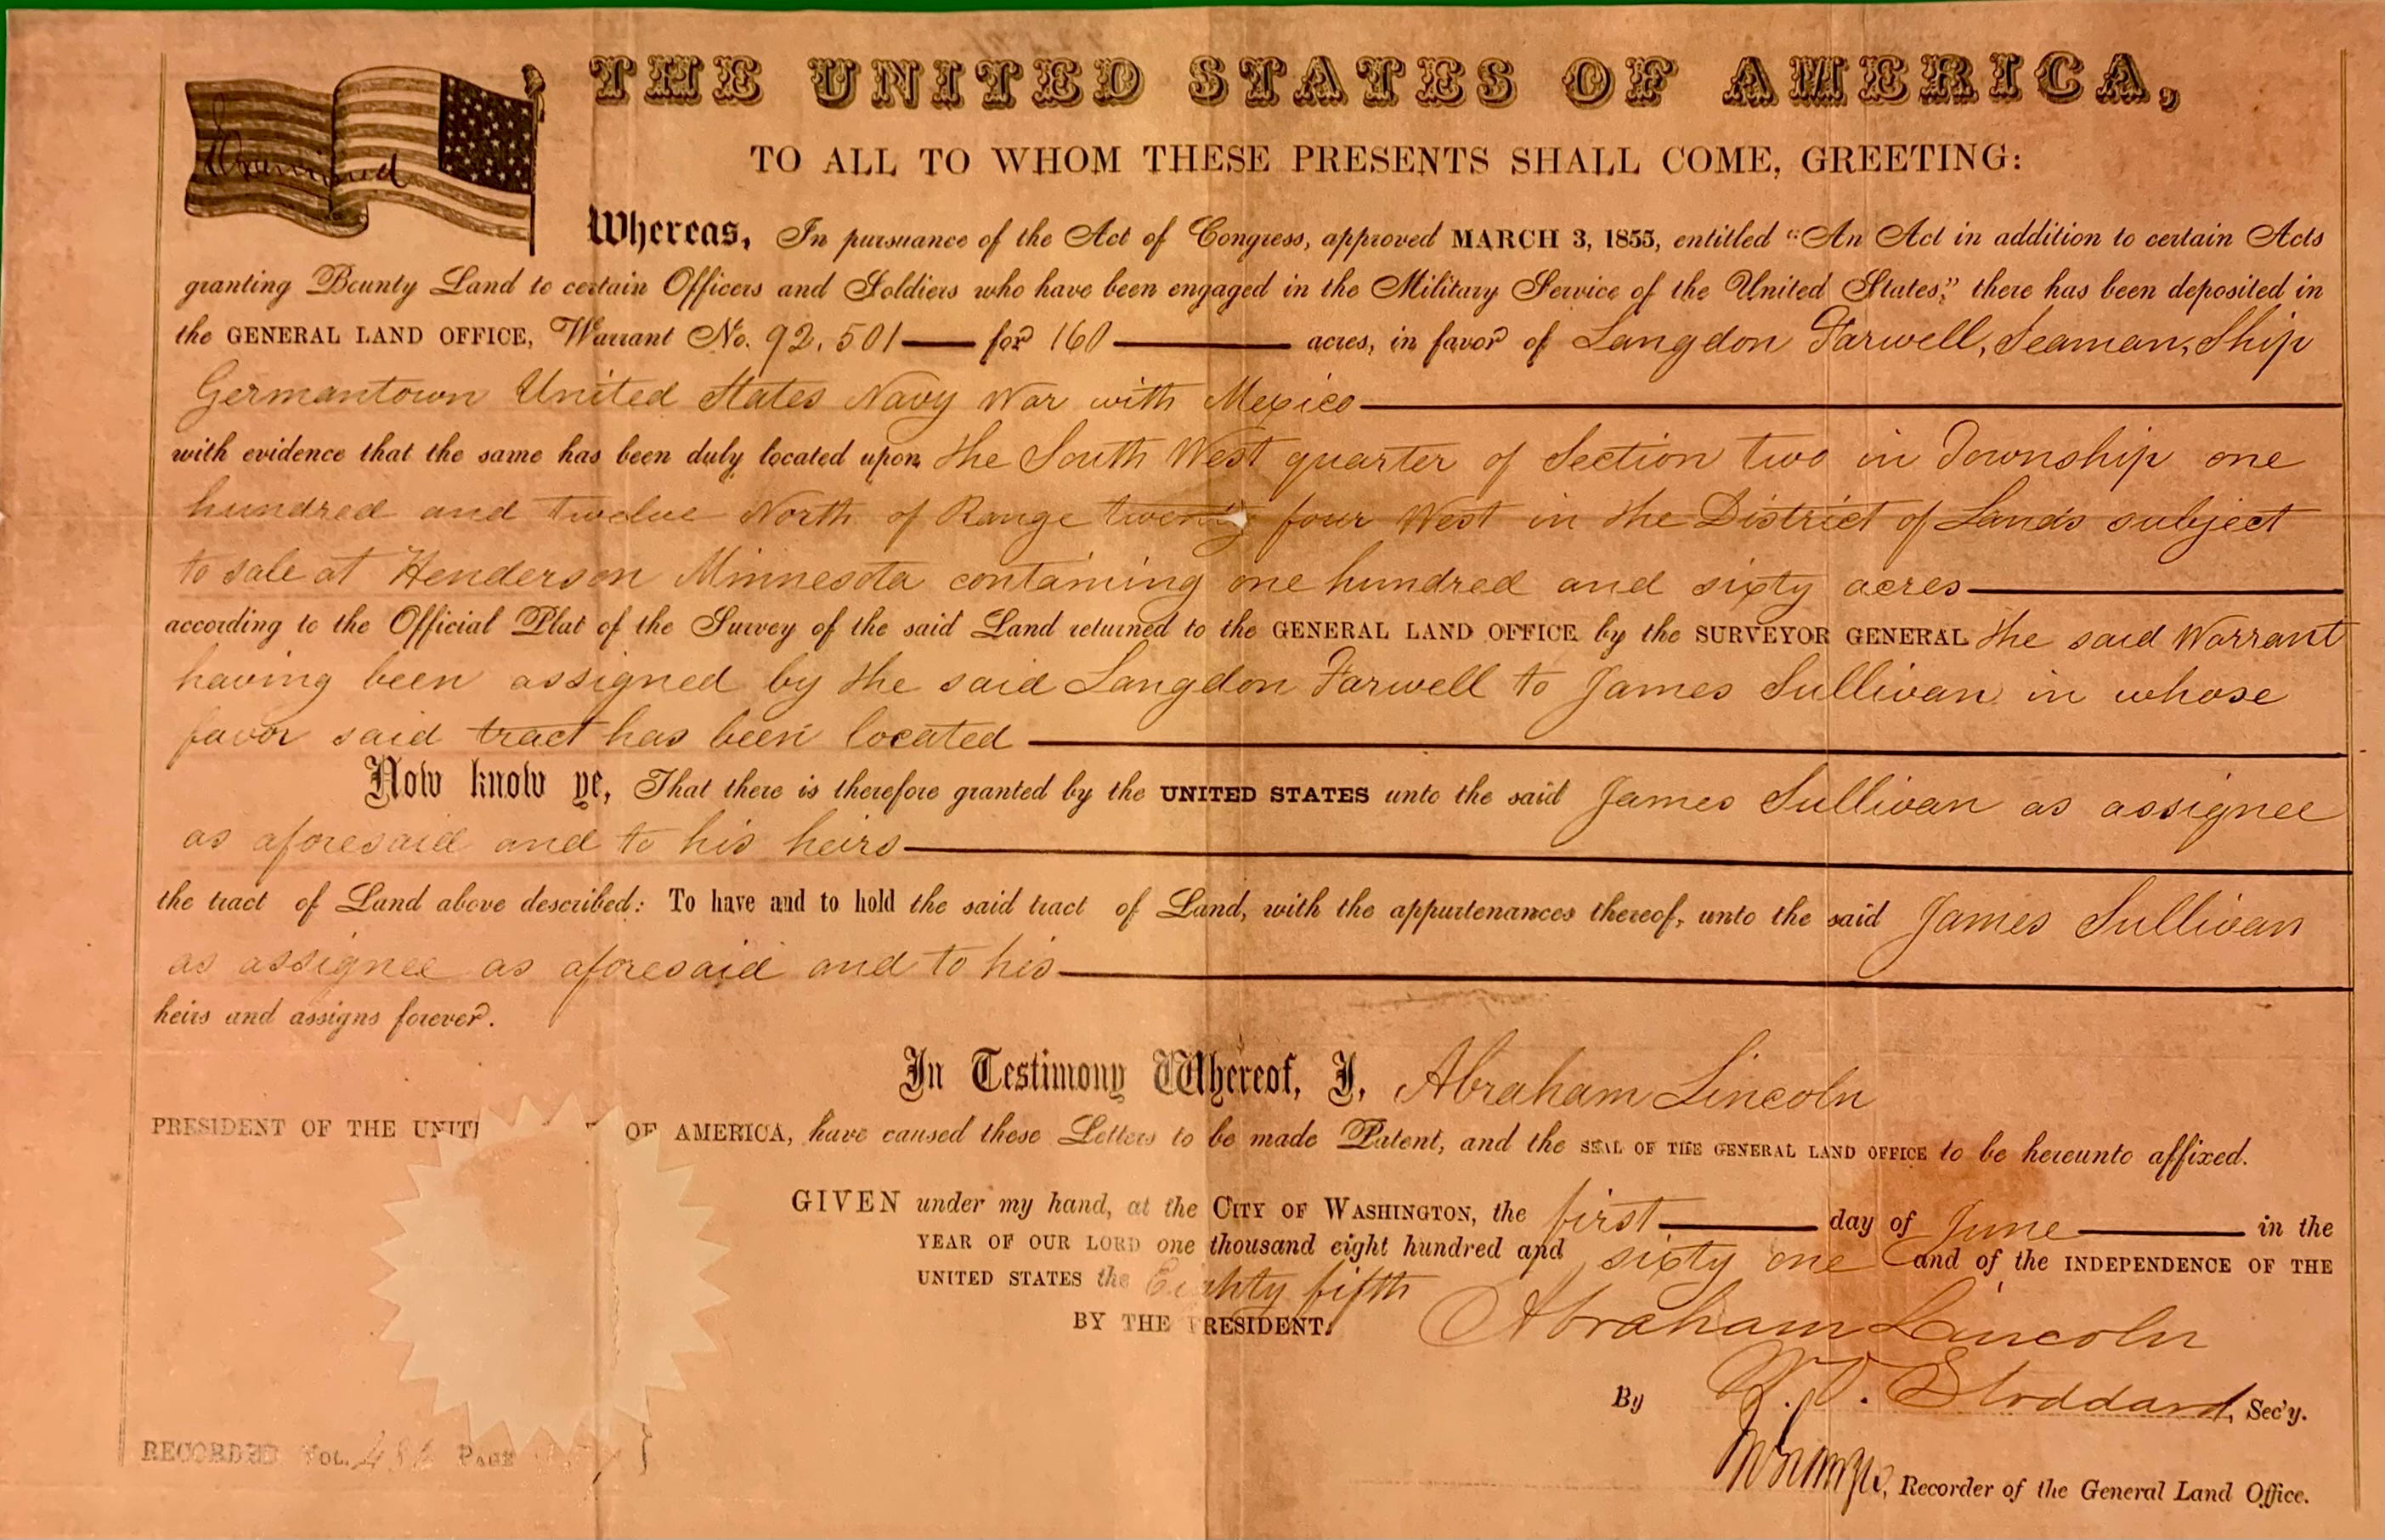 THE UNITED STATES OF AMERICA,
Examined
TO ALL TO WHOM THESE PRESENTS SHALL COME, GREETING:
Whereas, In pursuance of the Act of Congress, approved MARCH 3, 1855, entitled "An Act in addition to certain Acts
granting Bounty Land to certain Officers and Soldiers who have been engaged in the Military Service of the United States," there has been deposited in
the GENERAL LAND OFFICE, Warrant No. 92.501 for 160 acres, in favor of Langdon Farwell, Seaman, Ship
Germantown United States Navy War with Mexico
with evidence that the same has been duly located upon the South West quarter of Section two in Township one
hundred and twelve North of Range twenty four West in the District of Lands subject
to sale at Henderson Minnesota containing one hundred and sixty acres
according to the Official Plat of the Survey of the said Land returned to the GENERAL LAND OFFICE by the SURVEYOR GENERAL the said Warrant
having been assigned by the said Langdon Farwell to James Sullivan in whose
favor said tract has been located
Now know ye, That there is therefore granted by the UNITED STATES unto the said James Sullivan as assignee
as aforesaid and to his heirs
the tract of Land above described: To have and to hold the said tract of Land, with the appurtenances thereof, unto the said James Sullivan
as assignee as aforesaid and to his
heirs and assigns forever.
In Testimony Whereof, I, Abraham Lincoln
PRESIDENT OF THE UNIT OF AMERICA, have caused these Letters to be made Patent, and the SEAL OF THE GENERAL LAND OFFICE to be hereunto affixed.
GIVEN under my hand, at the CITY OF WASHINGTON, the first day of June in the
YEAR OF OUR LORD one thousand eight hundred and sixty one and of the INDEPENDENCE OF THE
UNITED STATES the Eighty fifth
BY THE PRESIDENT: Abraham Lincoln
By W. O. Stoddard, Sec'y.
Recorder of the General Land Office.
RECORDED VOL. PAGE